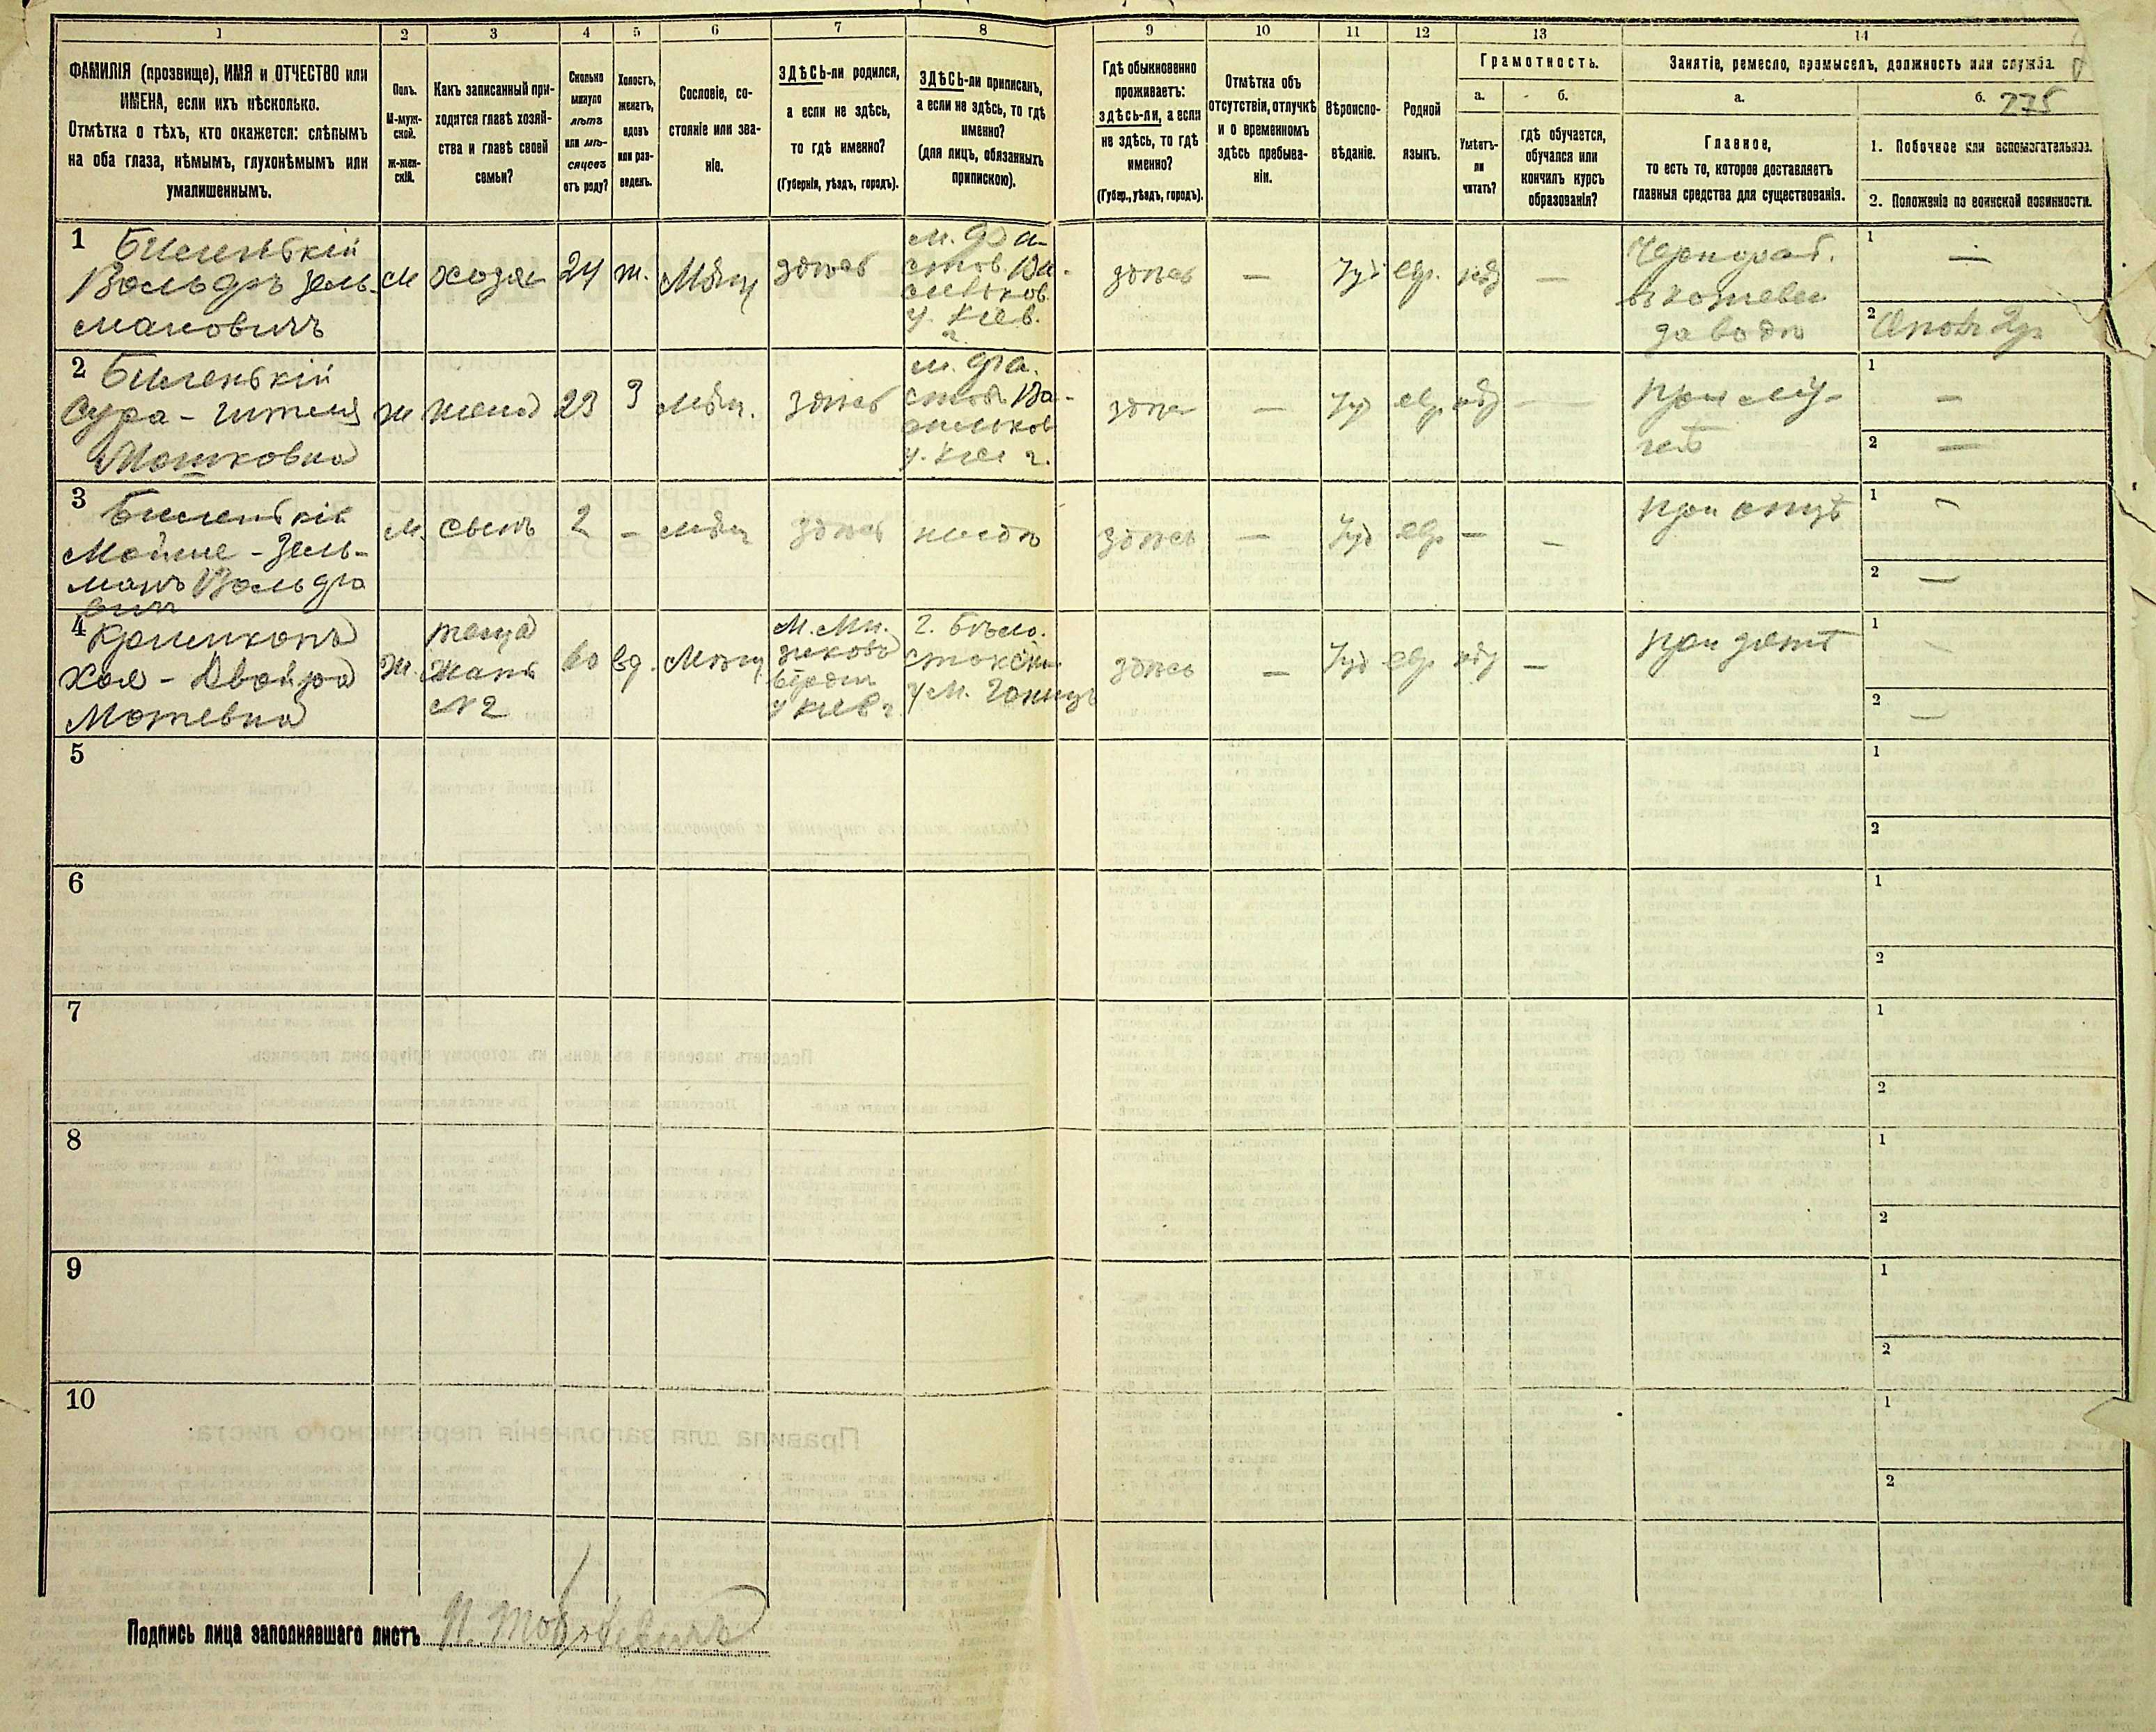 1 2 3 4 5 6 7 8 9 10 11 12 13 14
ФАМИЛІЯ (прозвище), ИМЯ и ОТЧЕСТВО или
ИМЕНА, если ихъ нѣсколько.
Отмѣтка о тѣхъ, кто окажется: слѣпымъ
на оба глаза, нѣмымъ, глухонѣмымъ или
умалишеннымъ.
Полъ.
М-муж-
ской.
ж-жен-
скій.
Какъ записанный при-
ходится главѣ хозяй-
ства и главѣ своей
семьи?
Сколько
минуло
лѣтъ
или мѣ-
сяцевъ
отъ роду?
Холостъ,
женатъ,
вдовъ
или раз-
веденъ.
Сословіе, со-
стояніе или зва-
ніе.
ЗДѢСЬ-ли родился,
а если не здѣсь,
то гдѣ именно?
(Губернія, уѣздъ, городъ).
ЗДѢСЬ-ли приписанъ,
а если не здѣсь, то гдѣ
именно?
(для лицъ, обязанныхъ
припискою).
Гдѣ обыкновенно
проживаетъ:
здѣсь-ли, а если
не здѣсь, то гдѣ
именно?
(Губер., уѣздъ, городъ).
Отмѣтка объ
отсутствіи, отлучкѣ
и о временномъ
здѣсь пребыва-
ніи.
Вѣроиспо-
вѣданіе.
Родной
языкъ.
Грамотность.
а.
Умѣетъ-
ли
читать?
б.
гдѣ обучается,
обучался или
кончилъ курсъ
образованія?
Занятіе, ремесло, промыселъ, должность или служба.
а.
Главное,
то есть то, которое доставляетъ
главныя средства для существованія.
б. 275
1. Побочное или вспомогательное.
2. Положеніе по воинской повинности.
1 Биленькій
Вольфъ Зель-
мановичъ
м хозяи 24 ж. Мѣщ здѣсь
м. Фа-
стов. Ва-
сильков.
у. Кіев.
г.
здѣсь — Іуд евр. —
Чернораб.
в кожевен
заводѣ
1 —
2
2 Биленькій
Сура - Гителя
Мошковна
ж жена 23 З мѣщ. здѣсь
м. Фа-
стов. Ва-
сильков
у. Кіев г.
здѣс — Іуд евр. —
При му-
жѣ
1 —
2 —
3 Биленькій
Мойше - Зель-
манъ Вольфо
вичъ
М. сынъ 2 — мѣщ здѣсь
здѣсь — Іуд евр — —
при отцѣ
1 —
2 —
4
Хая - Двойра
Мотевна
ж.
теща
жена
№2
60 вд. Мѣщ
у Кіев г.
г. Бѣло-
здѣсь — Іуд евр —
при зятѣ
1 —
2 —
5 1
2
6 1
2
7 1
2
8 1
2
9 1
2
10 1
2
Подпись лица заполнявшаго листъ